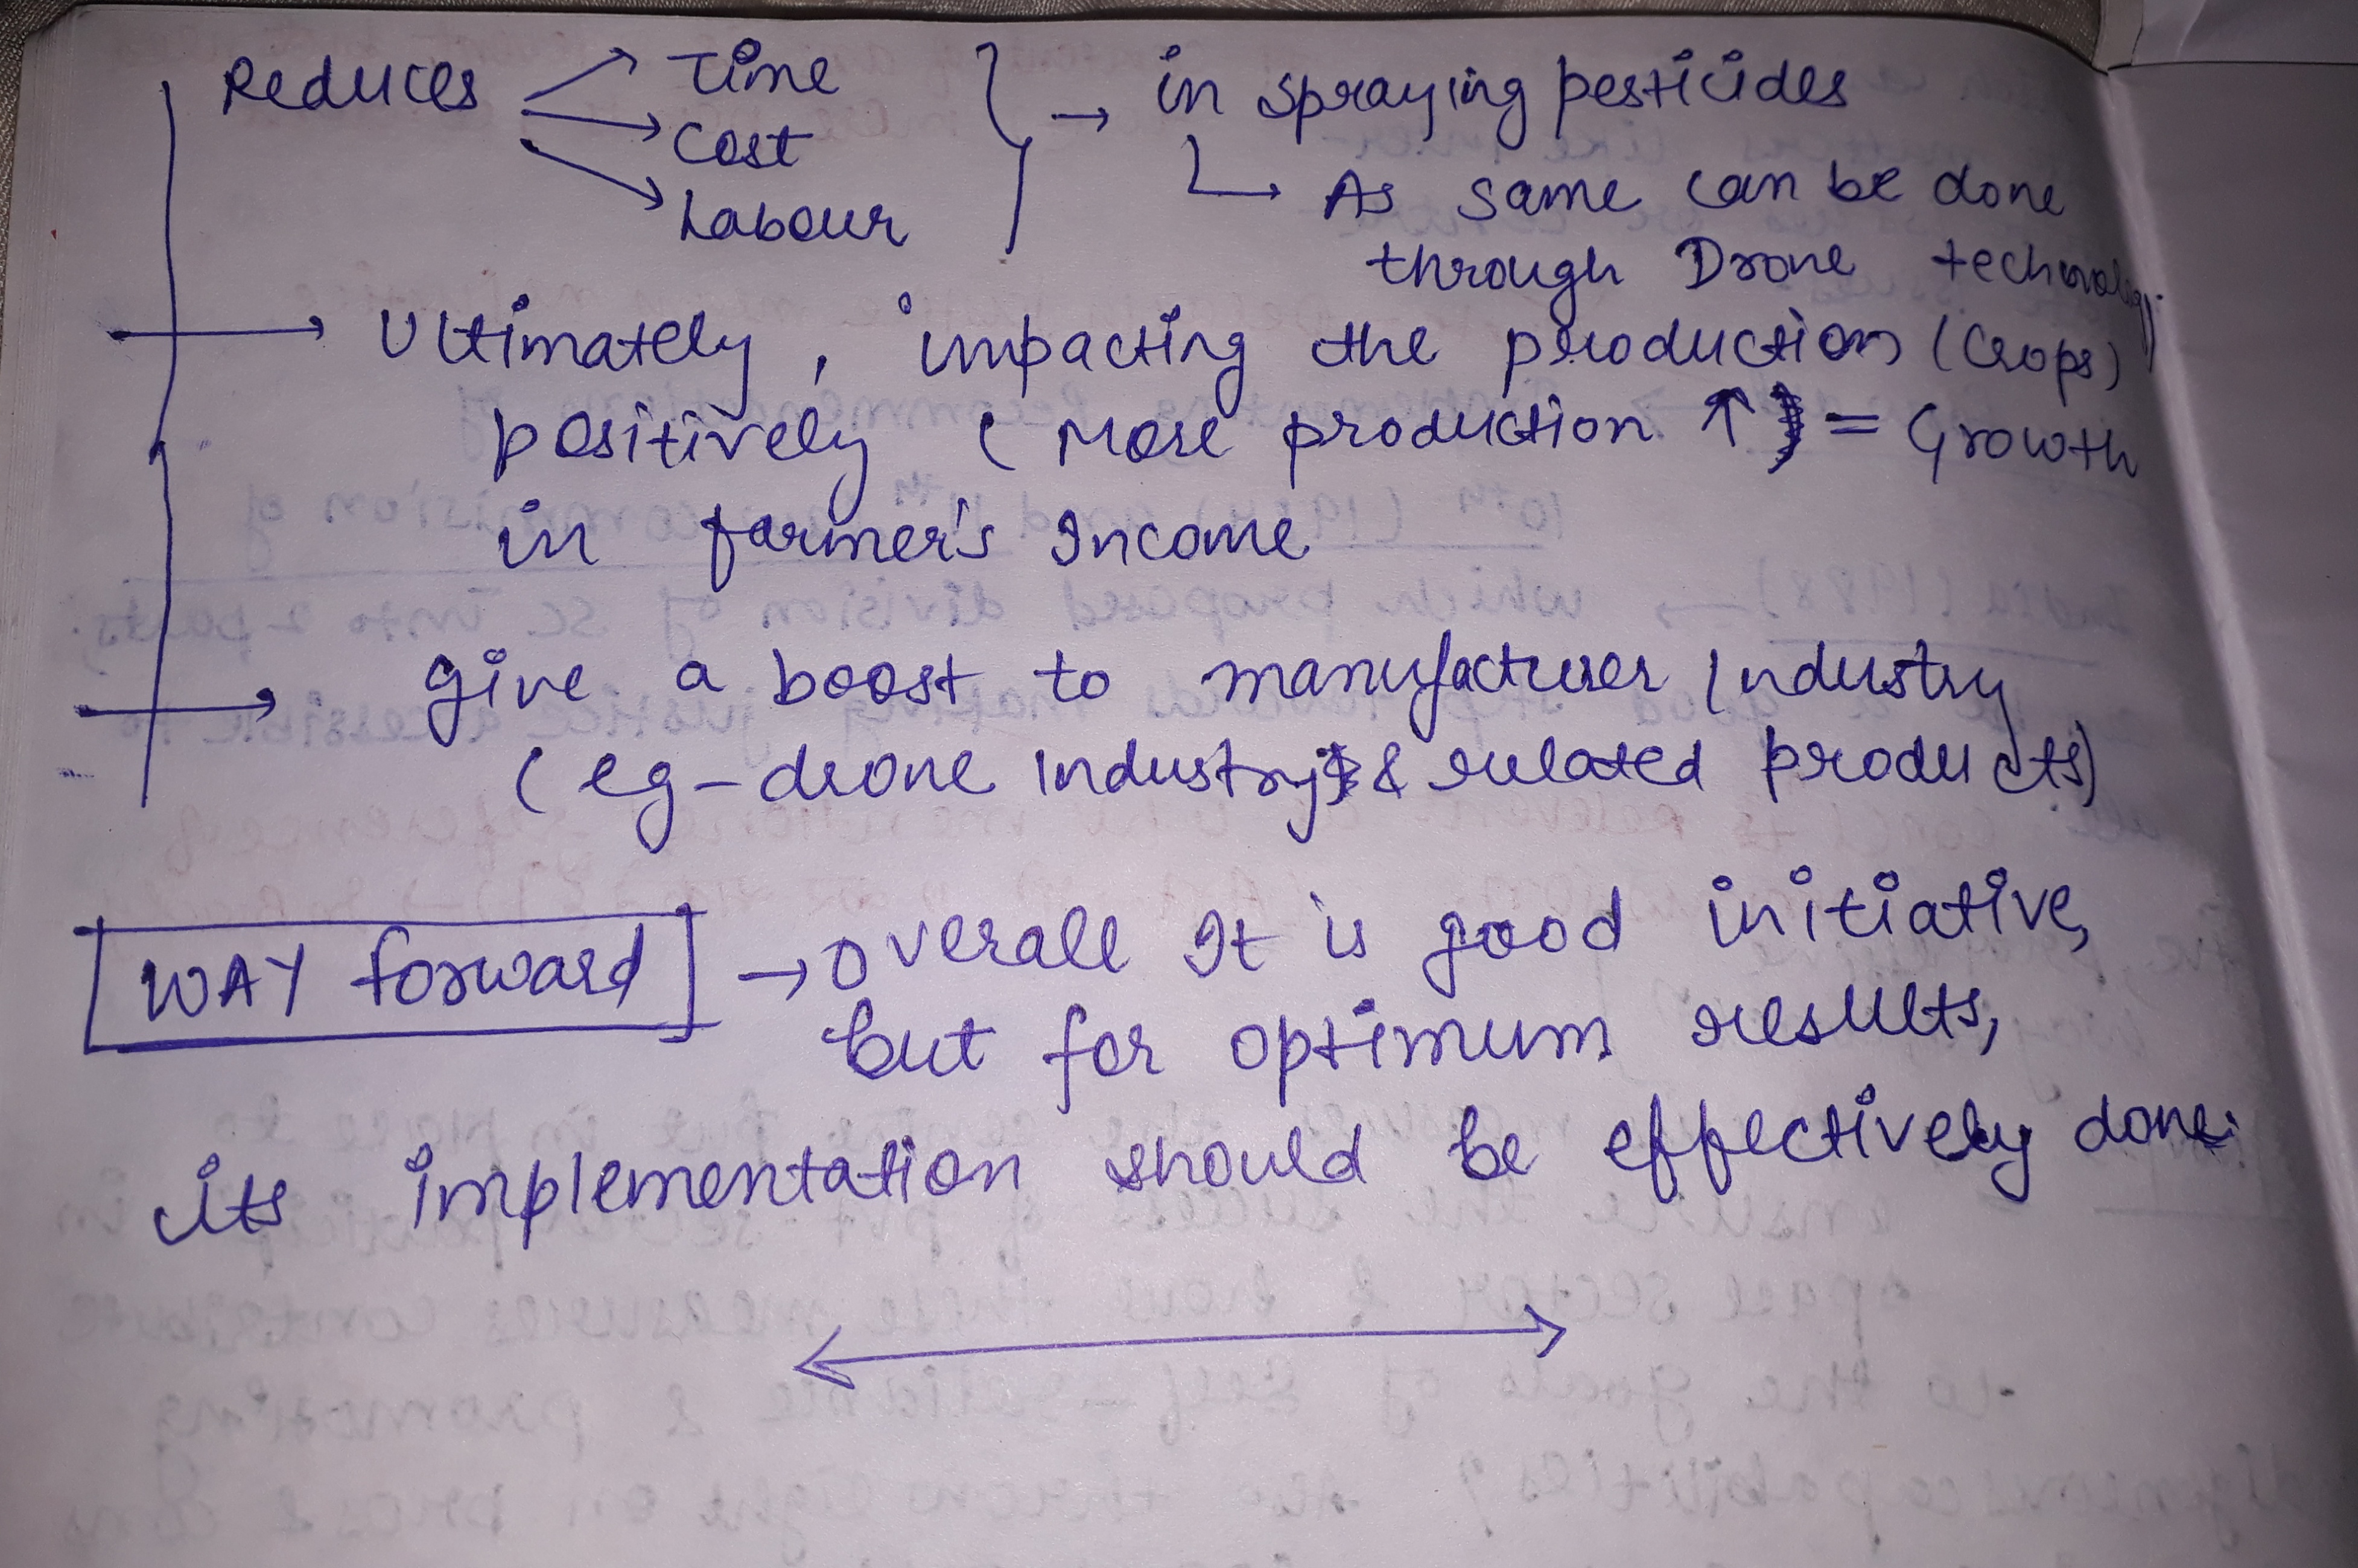 Reduces → Time } → in spraying pesticides
→ Cost
→ Labour
↳ As same can be done
through Drone technology
→ Ultimately, impacting the production (Crops)
positively (More production ↑) = Growth
in farmer's Income
→ give a boost to manufacturer Industry
(eg - drone Industry & related products)
[WAY forward] → Overall It is good initiative,
but for optimum results,
its implementation should be effectively done.